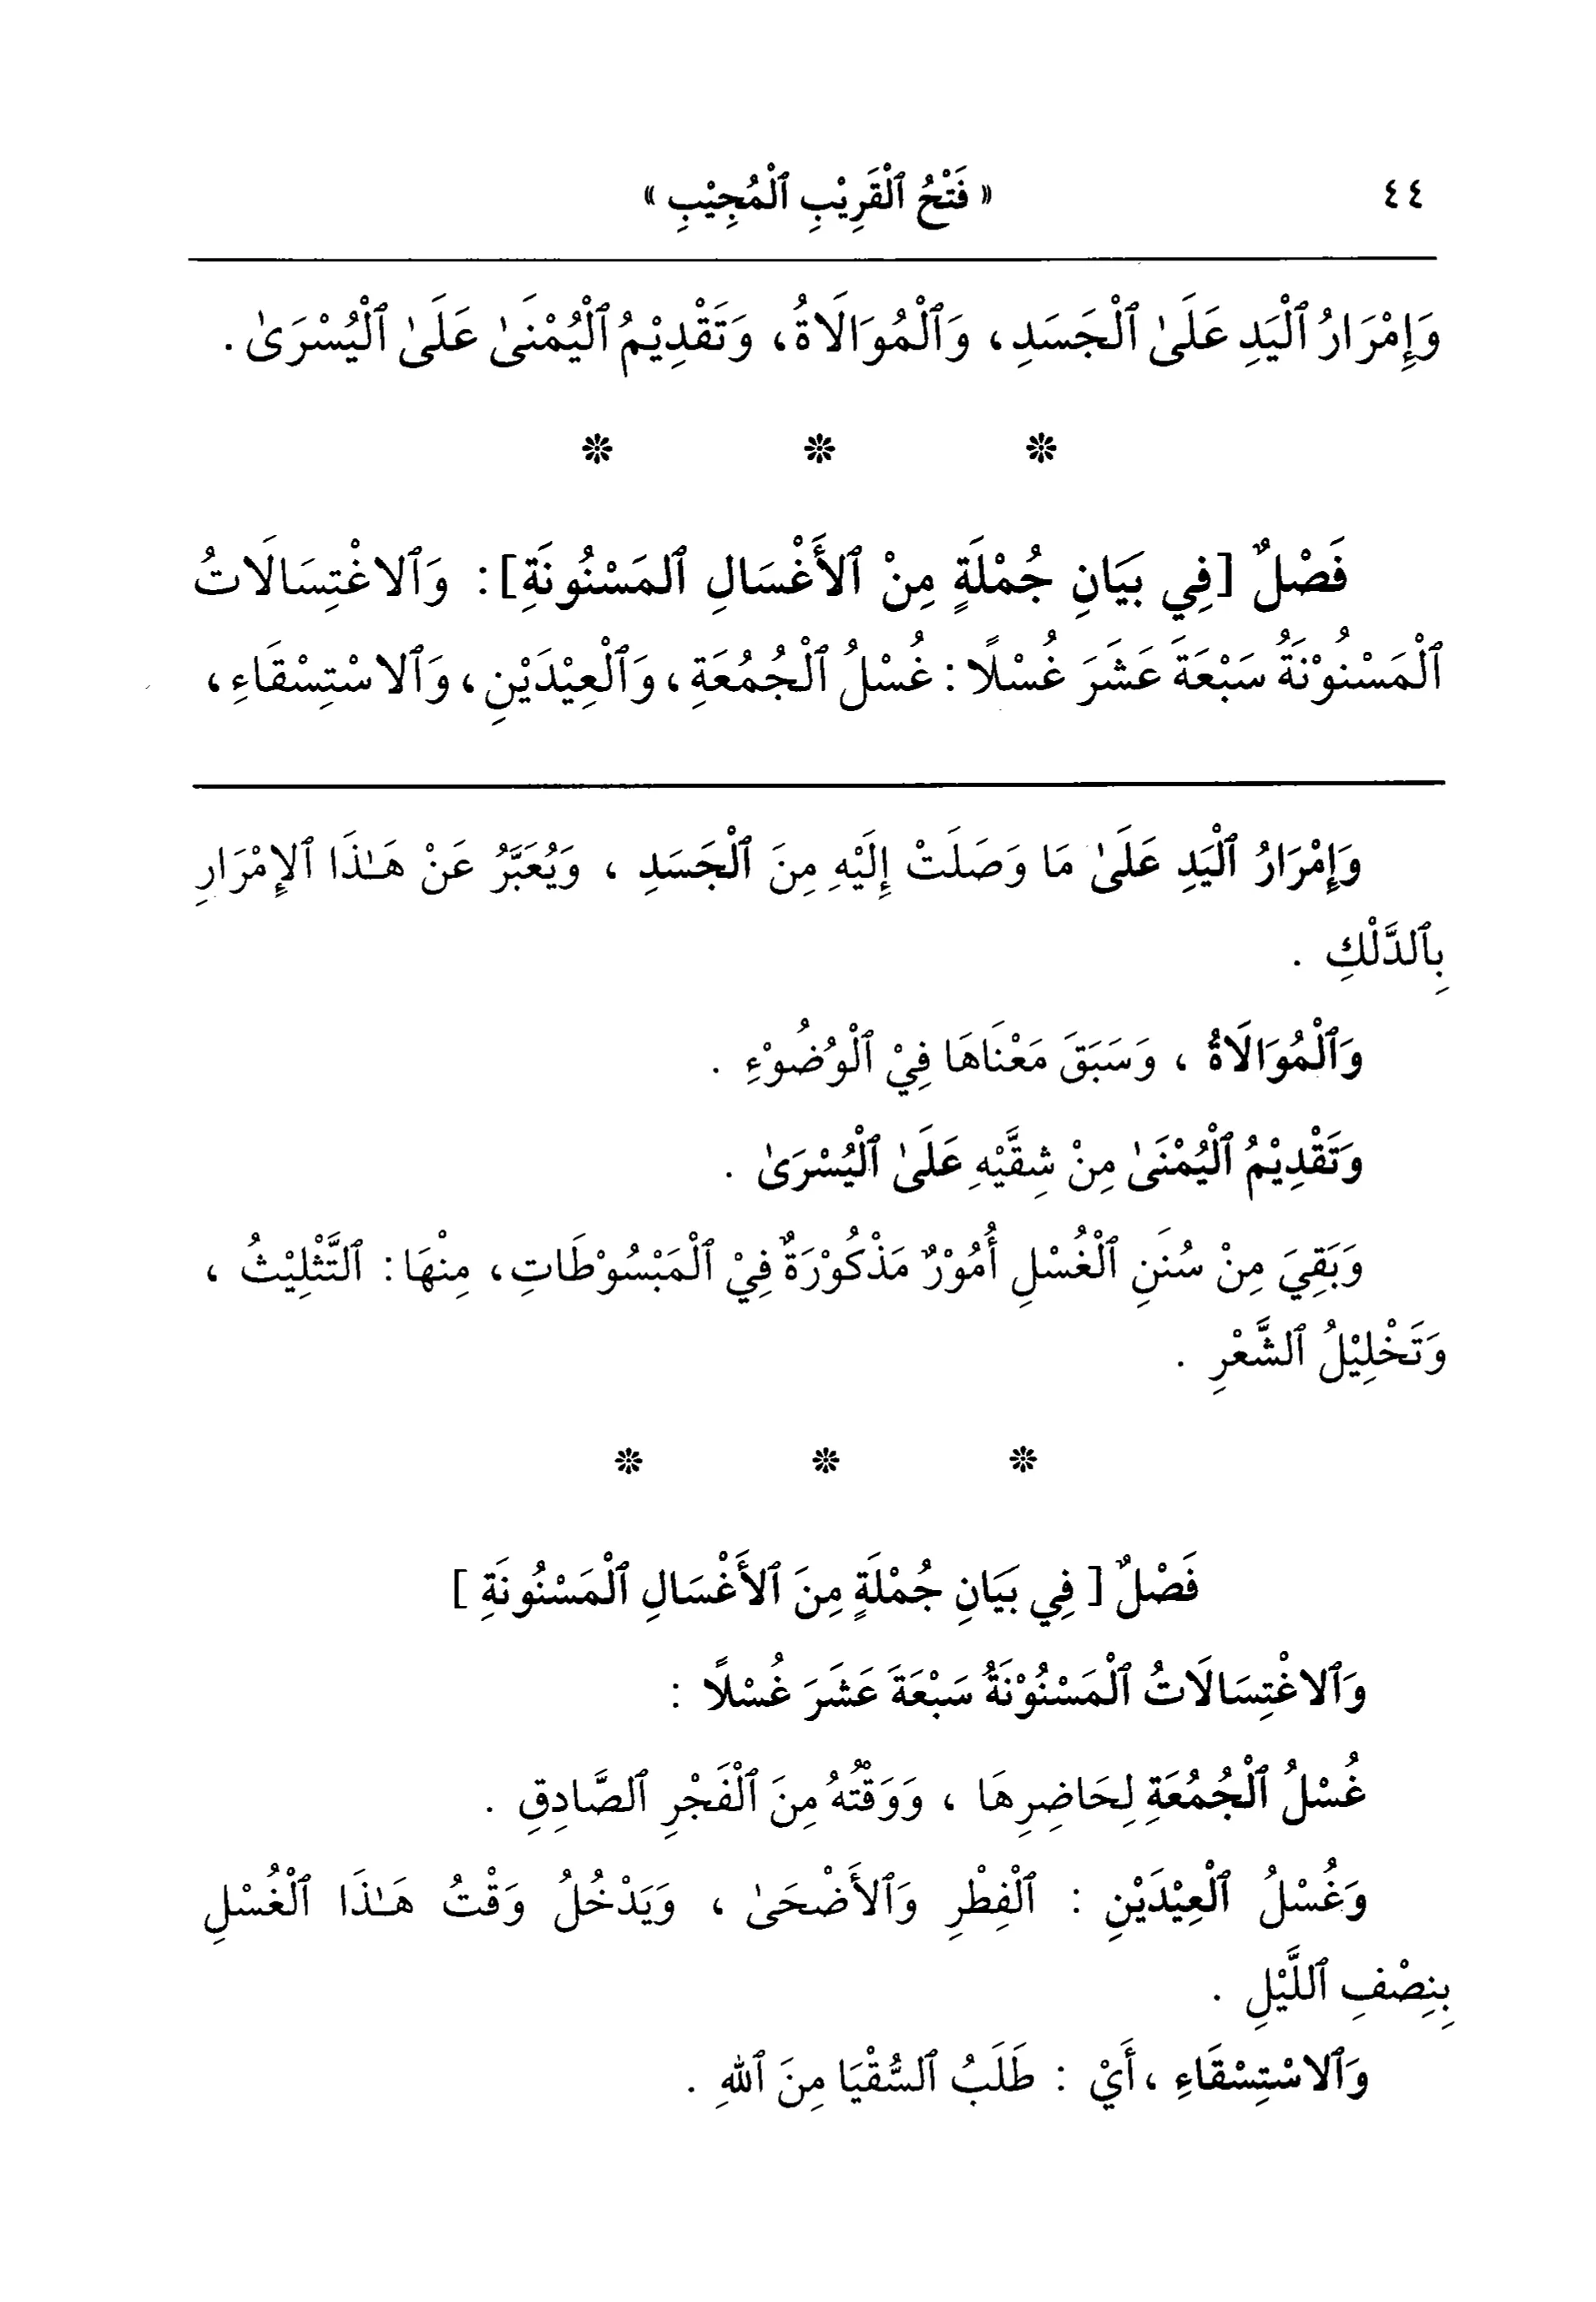 ٤٤ « فَتْحُ ٱلْقَرِيْبِ ٱلْمُجِيْبِ »
وَإِمْرَارُ ٱلْيَدِ عَلَىٰ ٱلْجَسَدِ، وَٱلْمُوَالَاةُ، وَتَقْدِيْمُ ٱلْيُمْنَىٰ عَلَىٰ ٱلْيُسْرَىٰ.
فَصْلٌ [فِي بَيَانِ جُمْلَةٍ مِنْ ٱلأَغْسَالِ ٱلمَسْنُونَةِ]: وَٱلاغْتِسَالَاتُ
ٱلْمَسْنُوْنَةُ سَبْعَةَ عَشَرَ غُسْلًا: غُسْلُ ٱلْجُمُعَةِ، وَٱلْعِيْدَيْنِ، وَٱلاسْتِسْقَاءِ،
وَإِمْرَارُ ٱلْيَدِ عَلَىٰ مَا وَصَلَتْ إِلَيْهِ مِنَ ٱلْجَسَدِ ، وَيُعَبَّرُ عَنْ هَـٰذَا ٱلإِمْرَارِ
بِٱلدَّلْكِ .
وَٱلْمُوَالَاةُ ، وَسَبَقَ مَعْنَاهَا فِيْ ٱلْوُضُوْءِ .
وَتَقْدِيْمُ ٱلْيُمْنَىٰ مِنْ شِقَّيْهِ عَلَىٰ ٱلْيُسْرَىٰ .
وَبَقِيَ مِنْ سُنَنِ ٱلْغُسْلِ أُمُوْرٌ مَذْكُوْرَةٌ فِيْ ٱلْمَبْسُوْطَاتِ، مِنْهَا: ٱلتَّثْلِيْثُ ،
وَتَخْلِيْلُ ٱلشَّعْرِ .
فَصْلٌ [ فِي بَيَانِ جُمْلَةٍ مِنَ ٱلأَغْسَالِ ٱلْمَسْنُونَةِ ]
وَٱلاغْتِسَالَاتُ ٱلْمَسْنُوْنَةُ سَبْعَةَ عَشَرَ غُسْلًا :
غُسْلُ ٱلْجُمُعَةِ لِحَاضِرِهَا ، وَوَقْتُهُ مِنَ ٱلْفَجْرِ ٱلصَّادِقِ .
وَغُسْلُ ٱلْعِيْدَيْنِ : ٱلْفِطْرِ وَٱلأَضْحَىٰ ، وَيَدْخُلُ وَقْتُ هَـٰذَا ٱلْغُسْلِ
بِنِصْفِ ٱللَّيْلِ .
وَٱلاسْتِسْقَاءِ ، أَيْ : طَلَبُ ٱلسُّقْيَا مِنَ ٱللهِ .